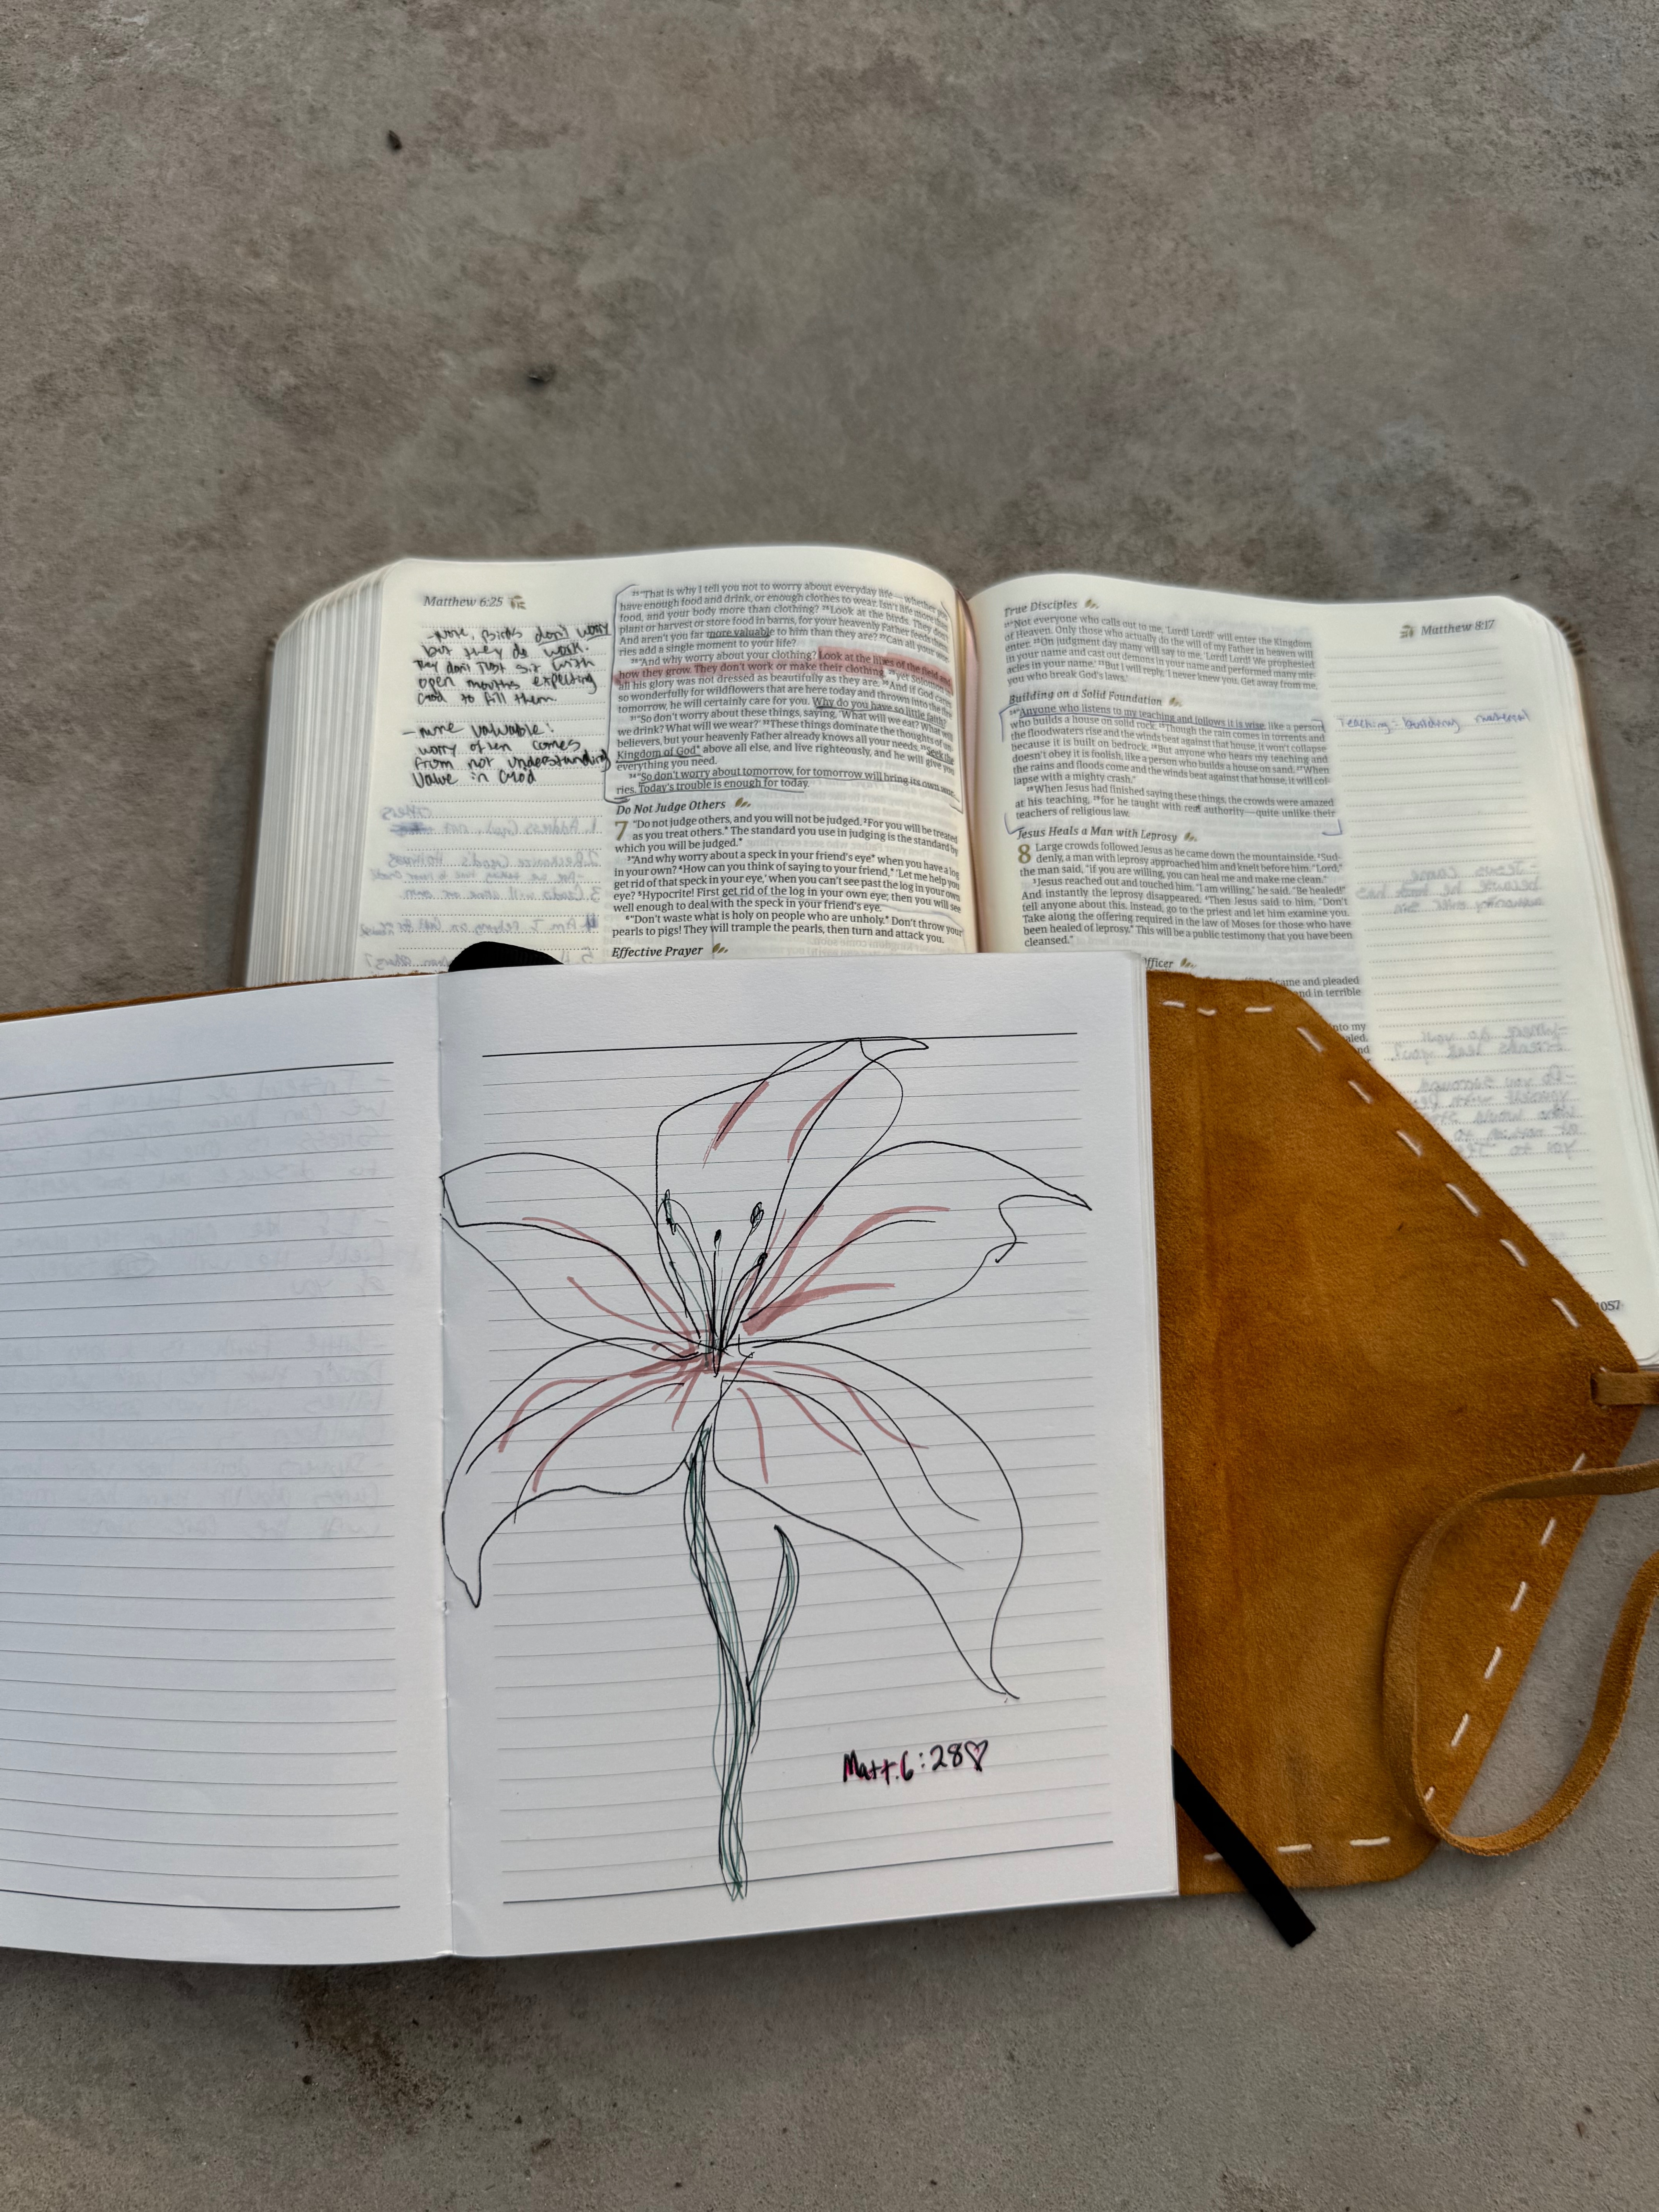 Matthew 6:25
-note, Birds don't worry
but they do work.
They don't just sit with
open mouths expecting
God to fill them
- more valuable:
worry often comes
from not understanding
value in God
25“That is why I tell you not to worry about everyday life—whether you
have enough food and drink, or enough clothes to wear. Isn't life more than
food, and your body more than clothing? 26Look at the birds. They don't
plant or harvest or store food in barns, for your heavenly Father feeds them.
And aren't you far more valuable to him than they are? 27Can all your wor-
ries add a single moment to your life?
28“And why worry about your clothing? Look at the lilies of the field and
how they grow. They don't work or make their clothing, 29yet Solomon in
all his glory was not dressed as beautifully as they are. 30And if God cares
so wonderfully for wildflowers that are here today and thrown into the fire
tomorrow, he will certainly care for you. Why do you have so little faith?
31“So don't worry about these things, saying, ‘What will we eat? What will
we drink? What will we wear?’ 32These things dominate the thoughts of un-
believers, but your heavenly Father already knows all your needs. 33Seek the
Kingdom of God* above all else, and live righteously, and he will give you
everything you need.
34“So don't worry about tomorrow, for tomorrow will bring its own wor-
ries. Today's trouble is enough for today.
Do Not Judge Others
7 “Do not judge others, and you will not be judged. 2For you will be treated
as you treat others.* The standard you use in judging is the standard by
which you will be judged.*
3“And why worry about a speck in your friend's eye* when you have a log
in your own? 4How can you think of saying to your friend,* ‘Let me help you
get rid of that speck in your eye,’ when you can't see past the log in your own
eye? 5Hypocrite! First get rid of the log in your own eye; then you will see
well enough to deal with the speck in your friend's eye.
6“Don't waste what is holy on people who are unholy.* Don't throw your
pearls to pigs! They will trample the pearls, then turn and attack you.
Effective Prayer
Matthew 8:17
True Disciples
21“Not everyone who calls out to me, ‘Lord! Lord!’ will enter the Kingdom
of Heaven. Only those who actually do the will of my Father in heaven will
enter. 22On judgment day many will say to me, ‘Lord! Lord! We prophesied
in your name and cast out demons in your name and performed many mir-
acles in your name.’ 23But I will reply, ‘I never knew you. Get away from me,
you who break God's laws.’
Building on a Solid Foundation
24“Anyone who listens to my teaching and follows it is wise, like a person
who builds a house on solid rock. 25Though the rain comes in torrents and
the floodwaters rise and the winds beat against that house, it won't collapse
because it is built on bedrock. 26But anyone who hears my teaching and
doesn't obey it is foolish, like a person who builds a house on sand. 27When
the rains and floods come and the winds beat against that house, it will col-
lapse with a mighty crash.”
28When Jesus had finished saying these things, the crowds were amazed
at his teaching, 29for he taught with real authority—quite unlike their
teachers of religious law.
Teaching = building material
Jesus Heals a Man with Leprosy
8 Large crowds followed Jesus as he came down the mountainside. 2Sud-
denly, a man with leprosy approached him and knelt before him. “Lord,”
the man said, “if you are willing, you can heal me and make me clean.”
3Jesus reached out and touched him. “I am willing,” he said. “Be healed!”
And instantly the leprosy disappeared. 4Then Jesus said to him, “Don't
tell anyone about this. Instead, go to the priest and let him examine you.
Take along the offering required in the law of Moses for those who have
been healed of leprosy.* This will be a public testimony that you have been
cleansed.”
Officer
came and pleaded
and in terrible
into my
healed.
and
1057
Matt. 6:28♡